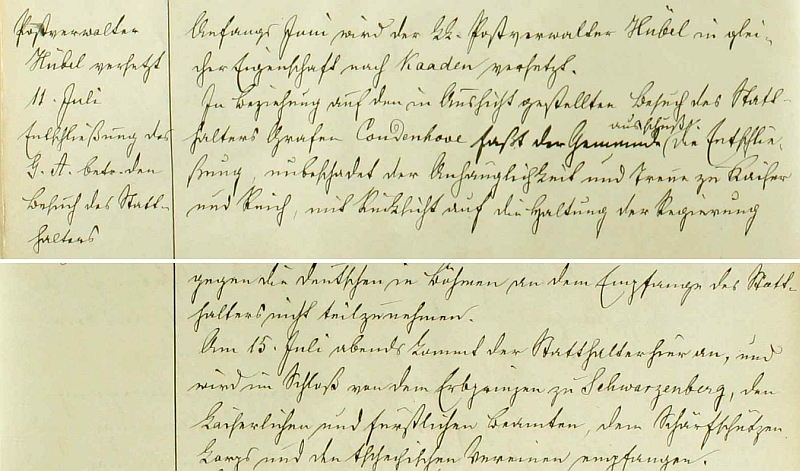 Postverwalter
Hübel versetzt
11. Juli
Entschließung des
G. A. betr. den
Besuch des Statt-
halters
Anfangs Juni wird der kk. Postverwalter Hübel in glei-
cher Eigenschaft nach Kaaden versetzt.
In Beziehung auf den in Aussicht gestellten Besuch des Statt-
halters Grafen Coudenhove faßt der Gemeinde ausschuß die Entschlie-
ßung, unbeschadet der Anhänglichkeit und Treue zu Kaiser
und Reich, mit Rücksicht auf die Haltung der Regierung
gegen die Deutschen in Böhmen an dem Empfange des Statt-
halters nicht teilzunehmen.
Am 15. Juli abends kommt der Statthalter hier an, und
wird im Schloß von dem Erbprinzen zu Schwarzenberg, den
Kaiserlichen und fürstlichen Beamten, dem Scharfschützen
Korps und den tschechischen Vereinen empfangen.